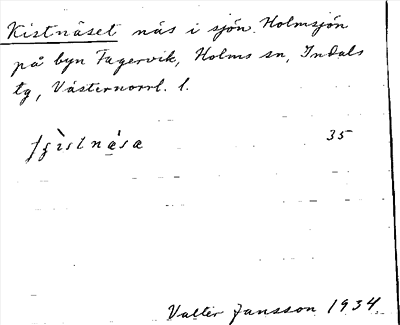 Kistnäset näs i sjön Holmsjön
på byn Fagervik, Holms sn, Indals
tg, Västernorrl. l.
35
Valter Jansson 1934.